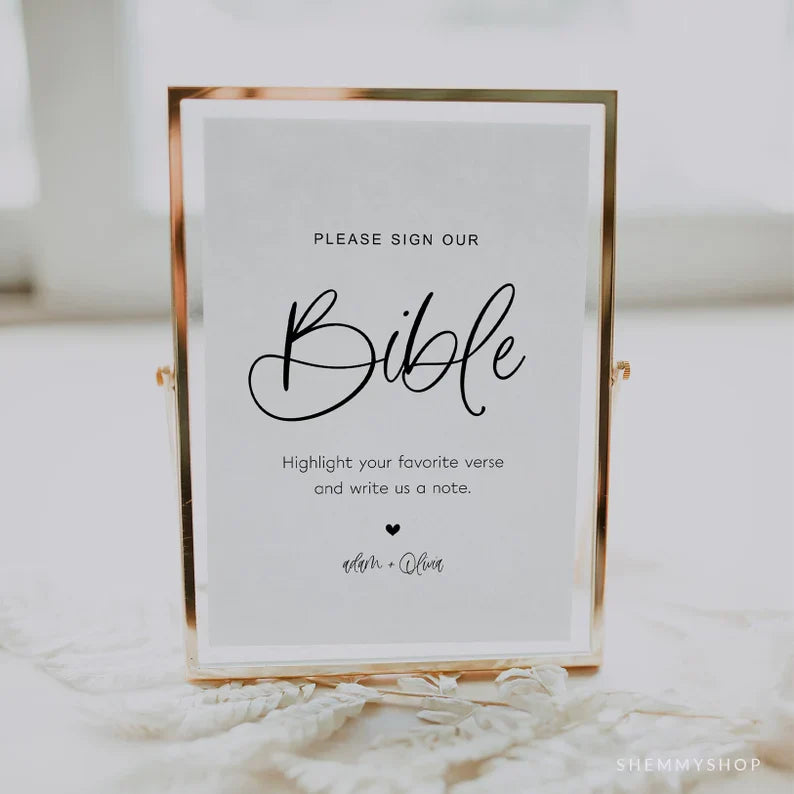 PLEASE SIGN OUR
Bible
Highlight your favorite verse
and write us a note.
adam + Olivia
SHEMMYSHOP